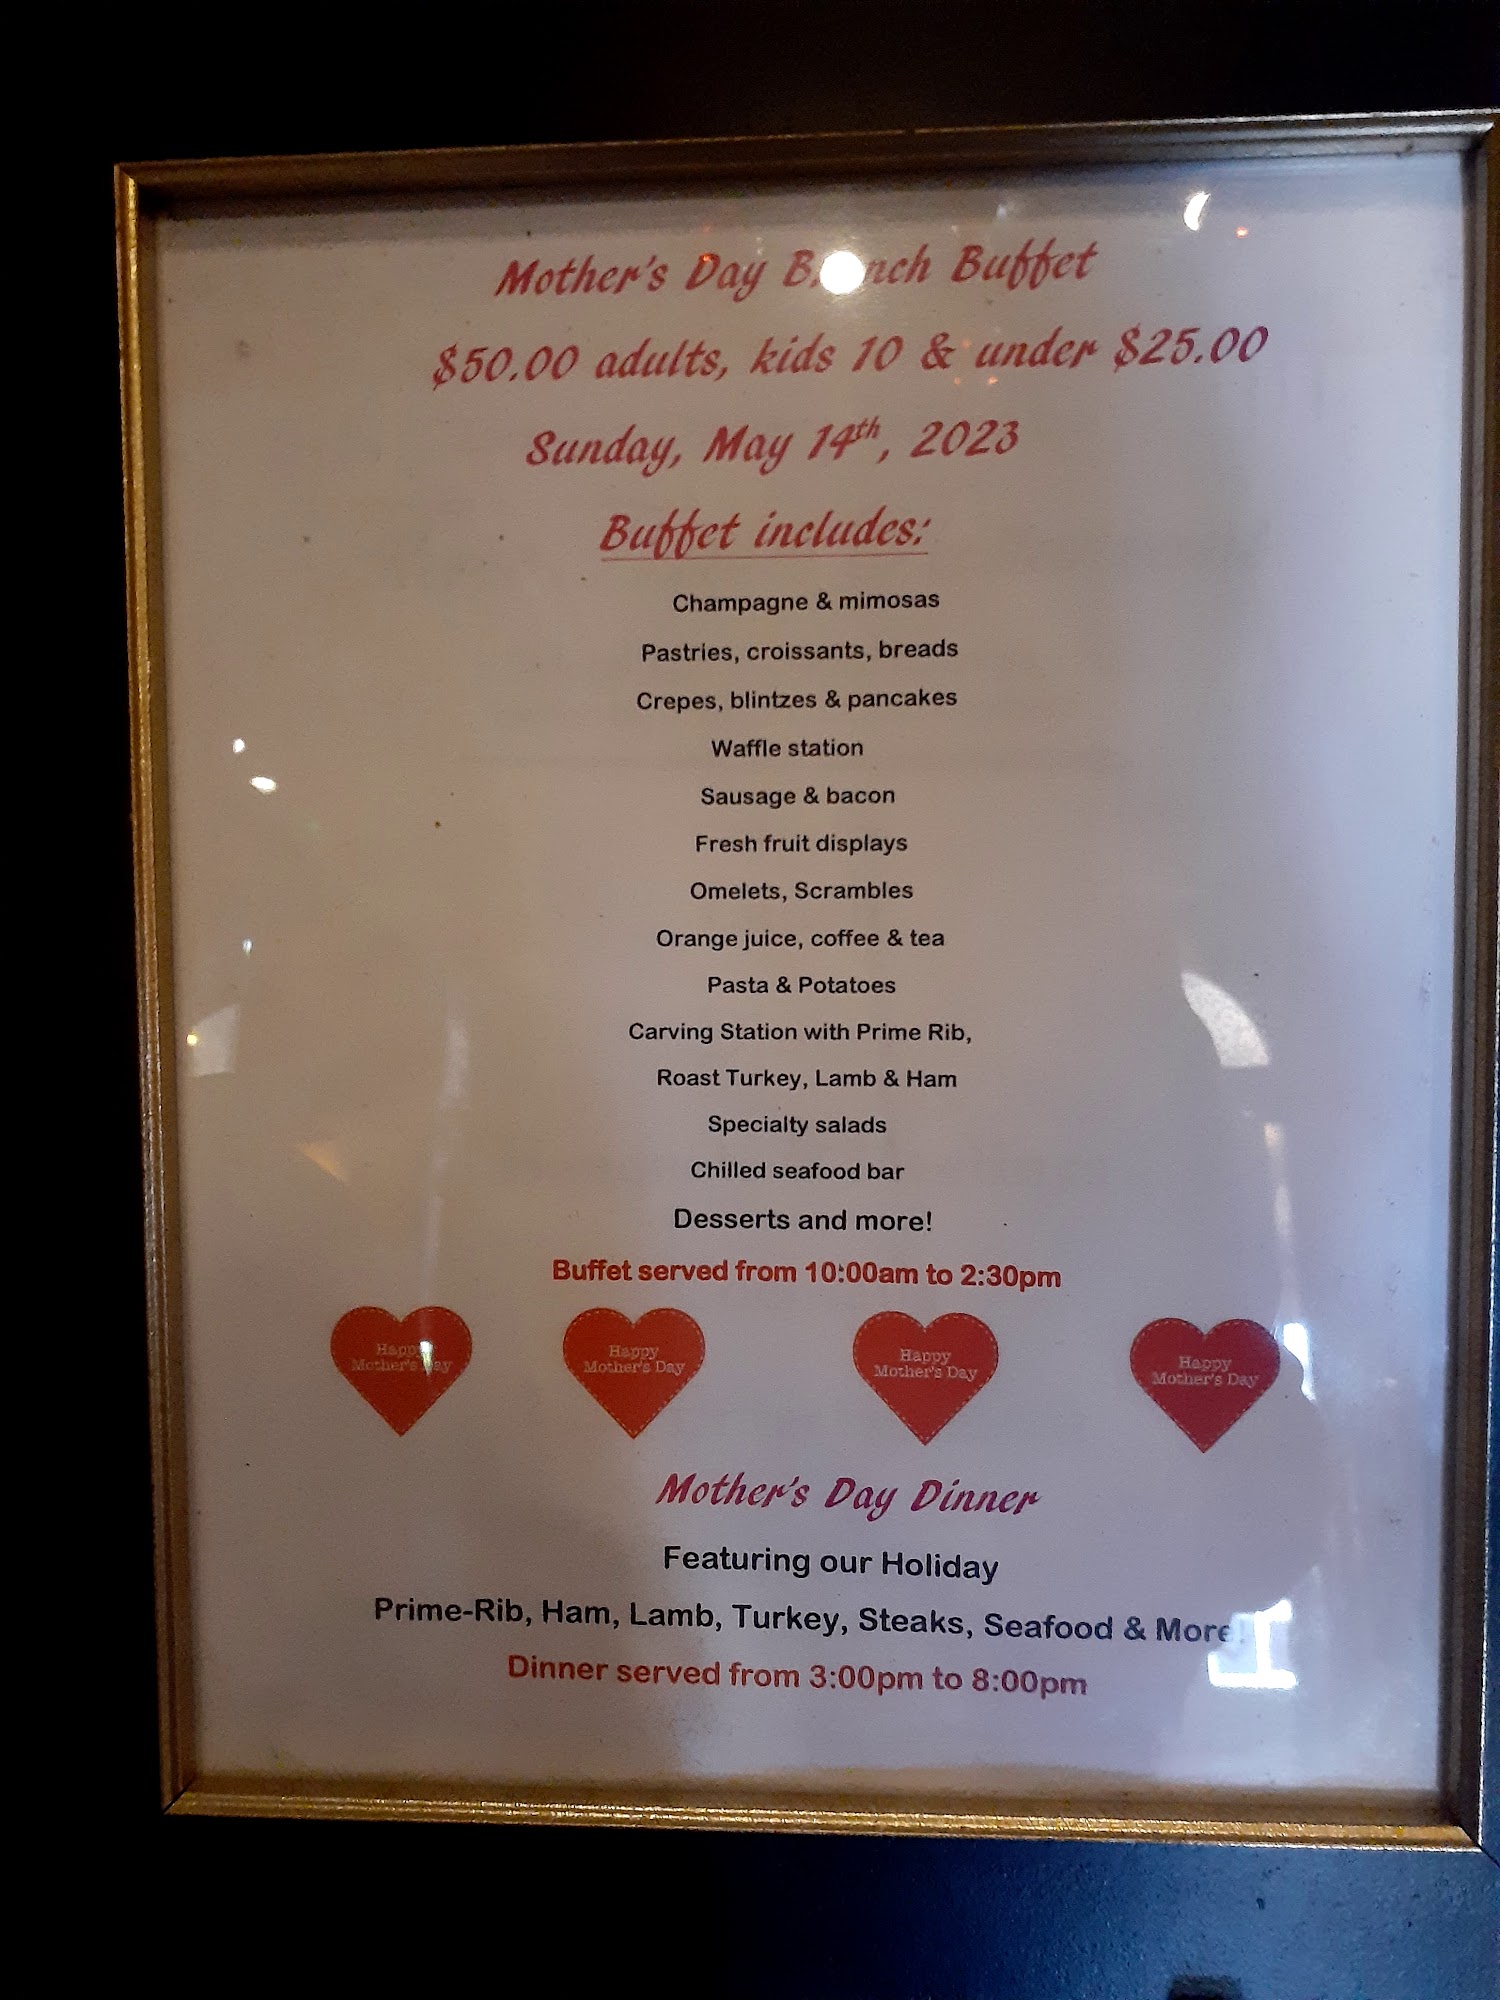 Mother's Day Brunch Buffet
$50.00 adults, kids 10 & under $25.00
Sunday, May 14th, 2023
Buffet includes:
Champagne & mimosas
Pastries, croissants, breads
Crepes, blintzes & pancakes
Waffle station
Sausage & bacon
Fresh fruit displays
Omelets, Scrambles
Orange juice, coffee & tea
Pasta & Potatoes
Carving Station with Prime Rib,
Roast Turkey, Lamb & Ham
Specialty salads
Chilled seafood bar
Desserts and more!
Buffet served from 10:00am to 2:30pm
Happy Happy Happy Happy
Mother's Day Mother's Day Mother's Day Mother's Day
Mother's Day Dinner
Featuring our Holiday
Prime-Rib, Ham, Lamb, Turkey, Steaks, Seafood & More!
Dinner served from 3:00pm to 8:00pm